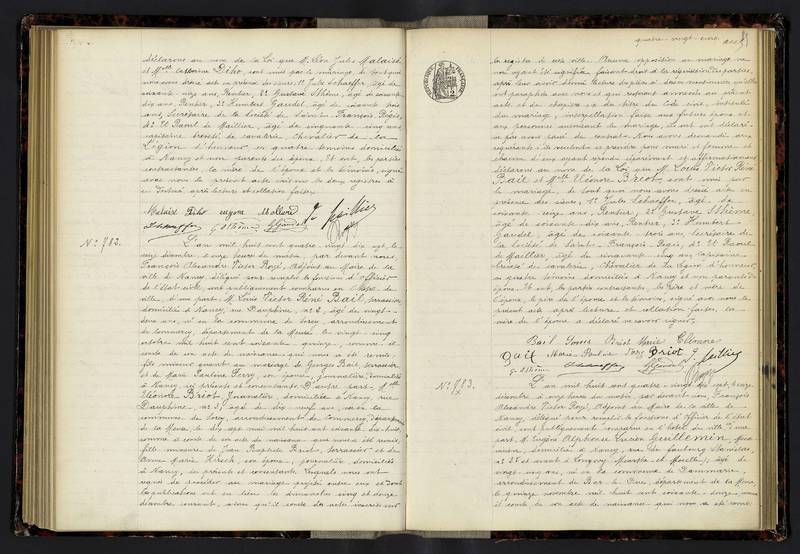 déclarons au nom de la Loi que M. Léon Jules Malaisé
et Mlle Catherine Diho, sont unis par le mariage, de tout quoi
nous avons dressé acte en présence des sieurs 1° Jules Schaeffer, âgé de
soixante onze ans, Rentier, 2° Gustave Sthème, âgé de soixante
dix ans, Rentier, 3° Humbert Gaudel, âgé de soixante trois
ans, Secrétaire de la Société de Saint François Régis,
4° et Raoul de Maillier, âgé de cinquante cinq ans
capitaine breveté de cavalerie Chevalier de la
Légion d'honneur, les quatre témoins domiciliés
à Nancy et non parents des époux. Et ont, les parties
contractantes, la mère de l'époux et les témoins, signé
avec nous le présent acte inscrit les deux registres à
ce destiné, après lecture et collation faites.
N° 782.
L'an mil huit cent quatre vingt dix sept, le
onze décembre, à onze heures du matin, par devant nous,
François Alexandre Victor Royé, Adjoint au Maire de la
ville de Nancy, délégué pour remplir les fonctions d'Officier
de l'Etat civil, ont publiquement comparu en l'hôtel de
ville, d'une part M. Louis Victor Réné Bail, terrassier
domicilié à Nancy, rue Dauphine, n° 2, âgé de vingt-
deux ans, né en la commune de Sorcy, arrondissement
de Commercy, département de la Meuse le vingt cinq
octobre mil huit cent soixante quinze, comme il
conste de son acte de naissance qui nous a été remis,
fils mineur quant au mariage de Georges Bail, terrassier,
et de Marie Pauline Sorcy, son épouse, journalière, domiciliés
à Nancy, ici présents et consentants. D'autre part, Mlle
Eléonore Briot, Journalière, domiciliée à Nancy, rue
Dauphine, n° 3, âgée de dix neuf ans, née en la
commune de Sorcy, arrondissement de Commercy, département
de la Meuse, le dix sept mai mil huit cent soixante dix huit,
comme il conste de son acte de naissance qui nous a été remis,
fille mineure de Jean Baptiste Briot, terrassier et de
Anne Marie Hirsch son épouse, journalière domiciliés
à Nancy, ici présents et consentants. Lesquels nous ont
requis de procéder au mariage projeté entre eux et dont
les publications ont eu lieu les dimanches cinq et douze
décembre courant, ainsi qu'il conste des actes inscrits sur
quatre-vingt-cinq
le registre de cette ville. Aucune opposition au mariage ne
nous ayant été signifiée, faisant droit à la réquisition des parties,
après leur avoir donné lecture des pièces
ont paraphés avec nous et qui restent annexées au présent
acte et du chapitre six du titre du code civil, intitulé
du mariage, interpellation faite aux futurs époux et
aux personnes autorisant le mariage, ils ont ont déclaré
n'avoir pas fait de contrat. Nous avons demandé aux
requérants s'ils veulent se prendre pour mari et femme et
chacun d'eux ayant répondu séparément et affirmativement
déclarons au nom de la Loi que M. Louis Victor Réné
Bail et Mlle Eléonore Briot, sont unis par
le mariage, de tout quoi nous avons dressé acte en
présence des sieurs 1° Jules Schaeffer, âgé de
soixante onze ans, Rentier, 2° Gustave Sthème
âgé de soixante dix ans, Rentier, 3° Humbert
Gaudel, âgé de soixante trois ans, Secrétaire de
la Société de Saint François Régis, 4° et Raoul
de Maillier, âgé de cinquante cinq ans, Capitaine
breveté de cavalerie, Chevalier de la Légion d'honneur
les quatre témoins domiciliés à Nancy et non parents des
époux. Et ont, les parties contractantes, les père et mère de
l'époux, le père de l'épouse et les témoins, signé avec nous le
présent acte après lecture et collation faites, la
mère de l'épouse a déclaré ne savoir signer.
Bail Louis Briot Marie Eléonore
Bail Marie Pauline Sorcy Briot
N° 783.
L'an mil huit cent quatre vingt dix sept, onze
décembre à onze heures du matin, par devant nous, François
Alexandre Victor Royé, Adjoint au Maire de la ville de
Nancy, délégué pour remplir les fonctions d'Officier de l'état
civil, ont publiquement comparu en l'hôtel de ville, d'une
part M. Eugène Alphonse Lucien Guillemin,
domicilié à Nancy, rue du faubourg Stanislas,
n° 28 et avant à Longwy Meurthe et Moselle, âgé de
vingt cinq ans, né en la commune de Dammarie,
arrondissement de Bar le Duc, département de la Meuse
le quinze novembre mil huit cent soixante douze, comme
il conste de son acte de naissance qui nous a été remis